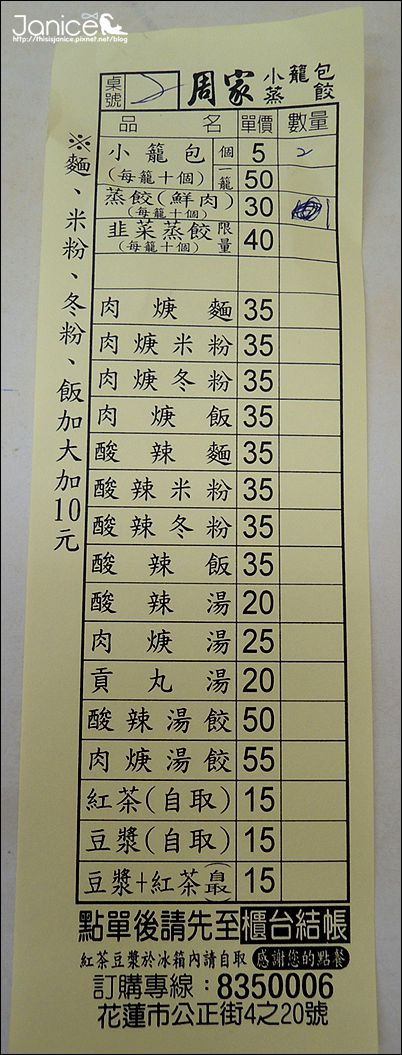 Janice
http://thisisjanice.pixnet.net/blog
桌號 2 周家 小籠包 蒸餃
品名 單價 數量
小籠包 個 5 2
(每籠十個) 一籠 50
蒸餃(鮮肉) (每籠十個) 30 1
韭菜蒸餃 (每籠十個) 限量 40
肉焿麵 35
肉焿米粉 35
肉焿冬粉 35
肉焿飯 35
酸辣麵 35
酸辣米粉 35
酸辣冬粉 35
酸辣飯 35
酸辣湯 20
肉焿湯 25
貢丸湯 20
酸辣湯餃 50
肉焿湯餃 55
紅茶(自取) 15
豆漿(自取) 15
豆漿+紅茶 15
※麵、米粉、冬粉、飯加大加10元
點單後請先至櫃台結帳
紅茶豆漿於冰箱內請自取 感謝您的點餐
訂購專線：8350006
花蓮市公正街4之20號